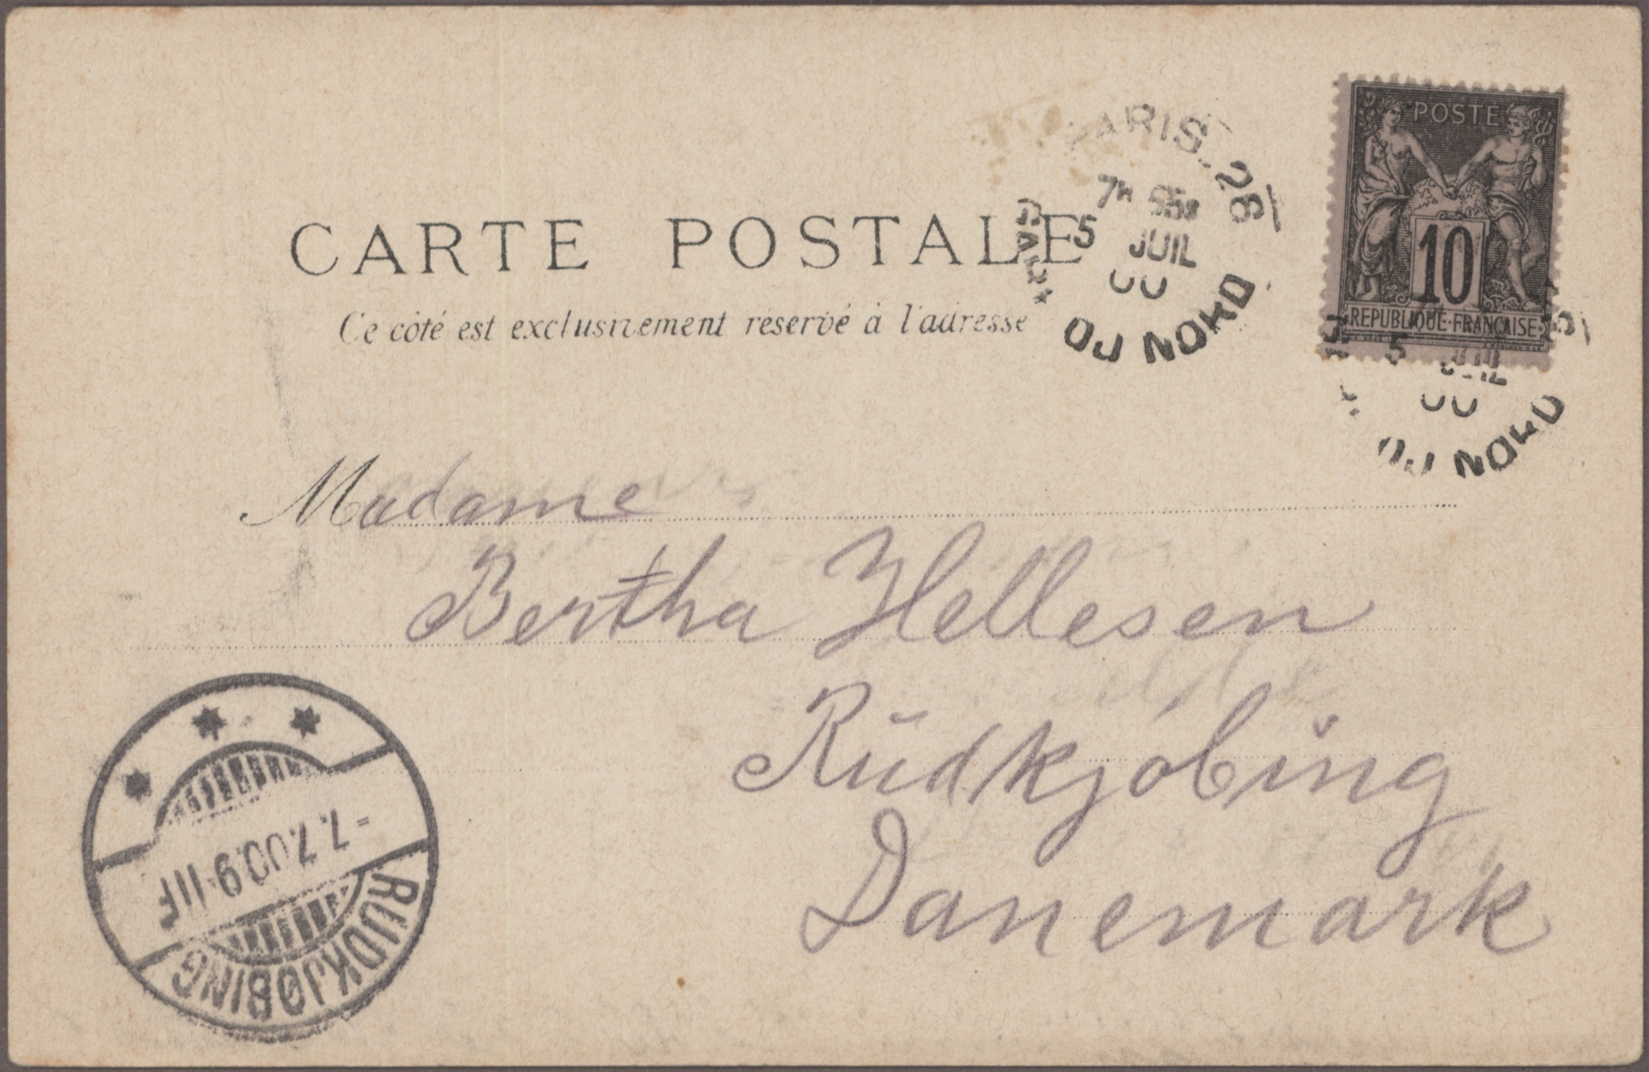 CARTE POSTALE
Ce côté est exclusivement réservé à l'adresse
PARIS_26
7h 55s
5 JUIL
00
GARE DU NORD
POSTE
10
REPUBLIQUE FRANÇAISE
5 JUIL
00
DU NORD
Madame
Bertha Hellesen
Rŭdkjöbing
Danemark
-7.7.00.9-11F
RUDKJØBING